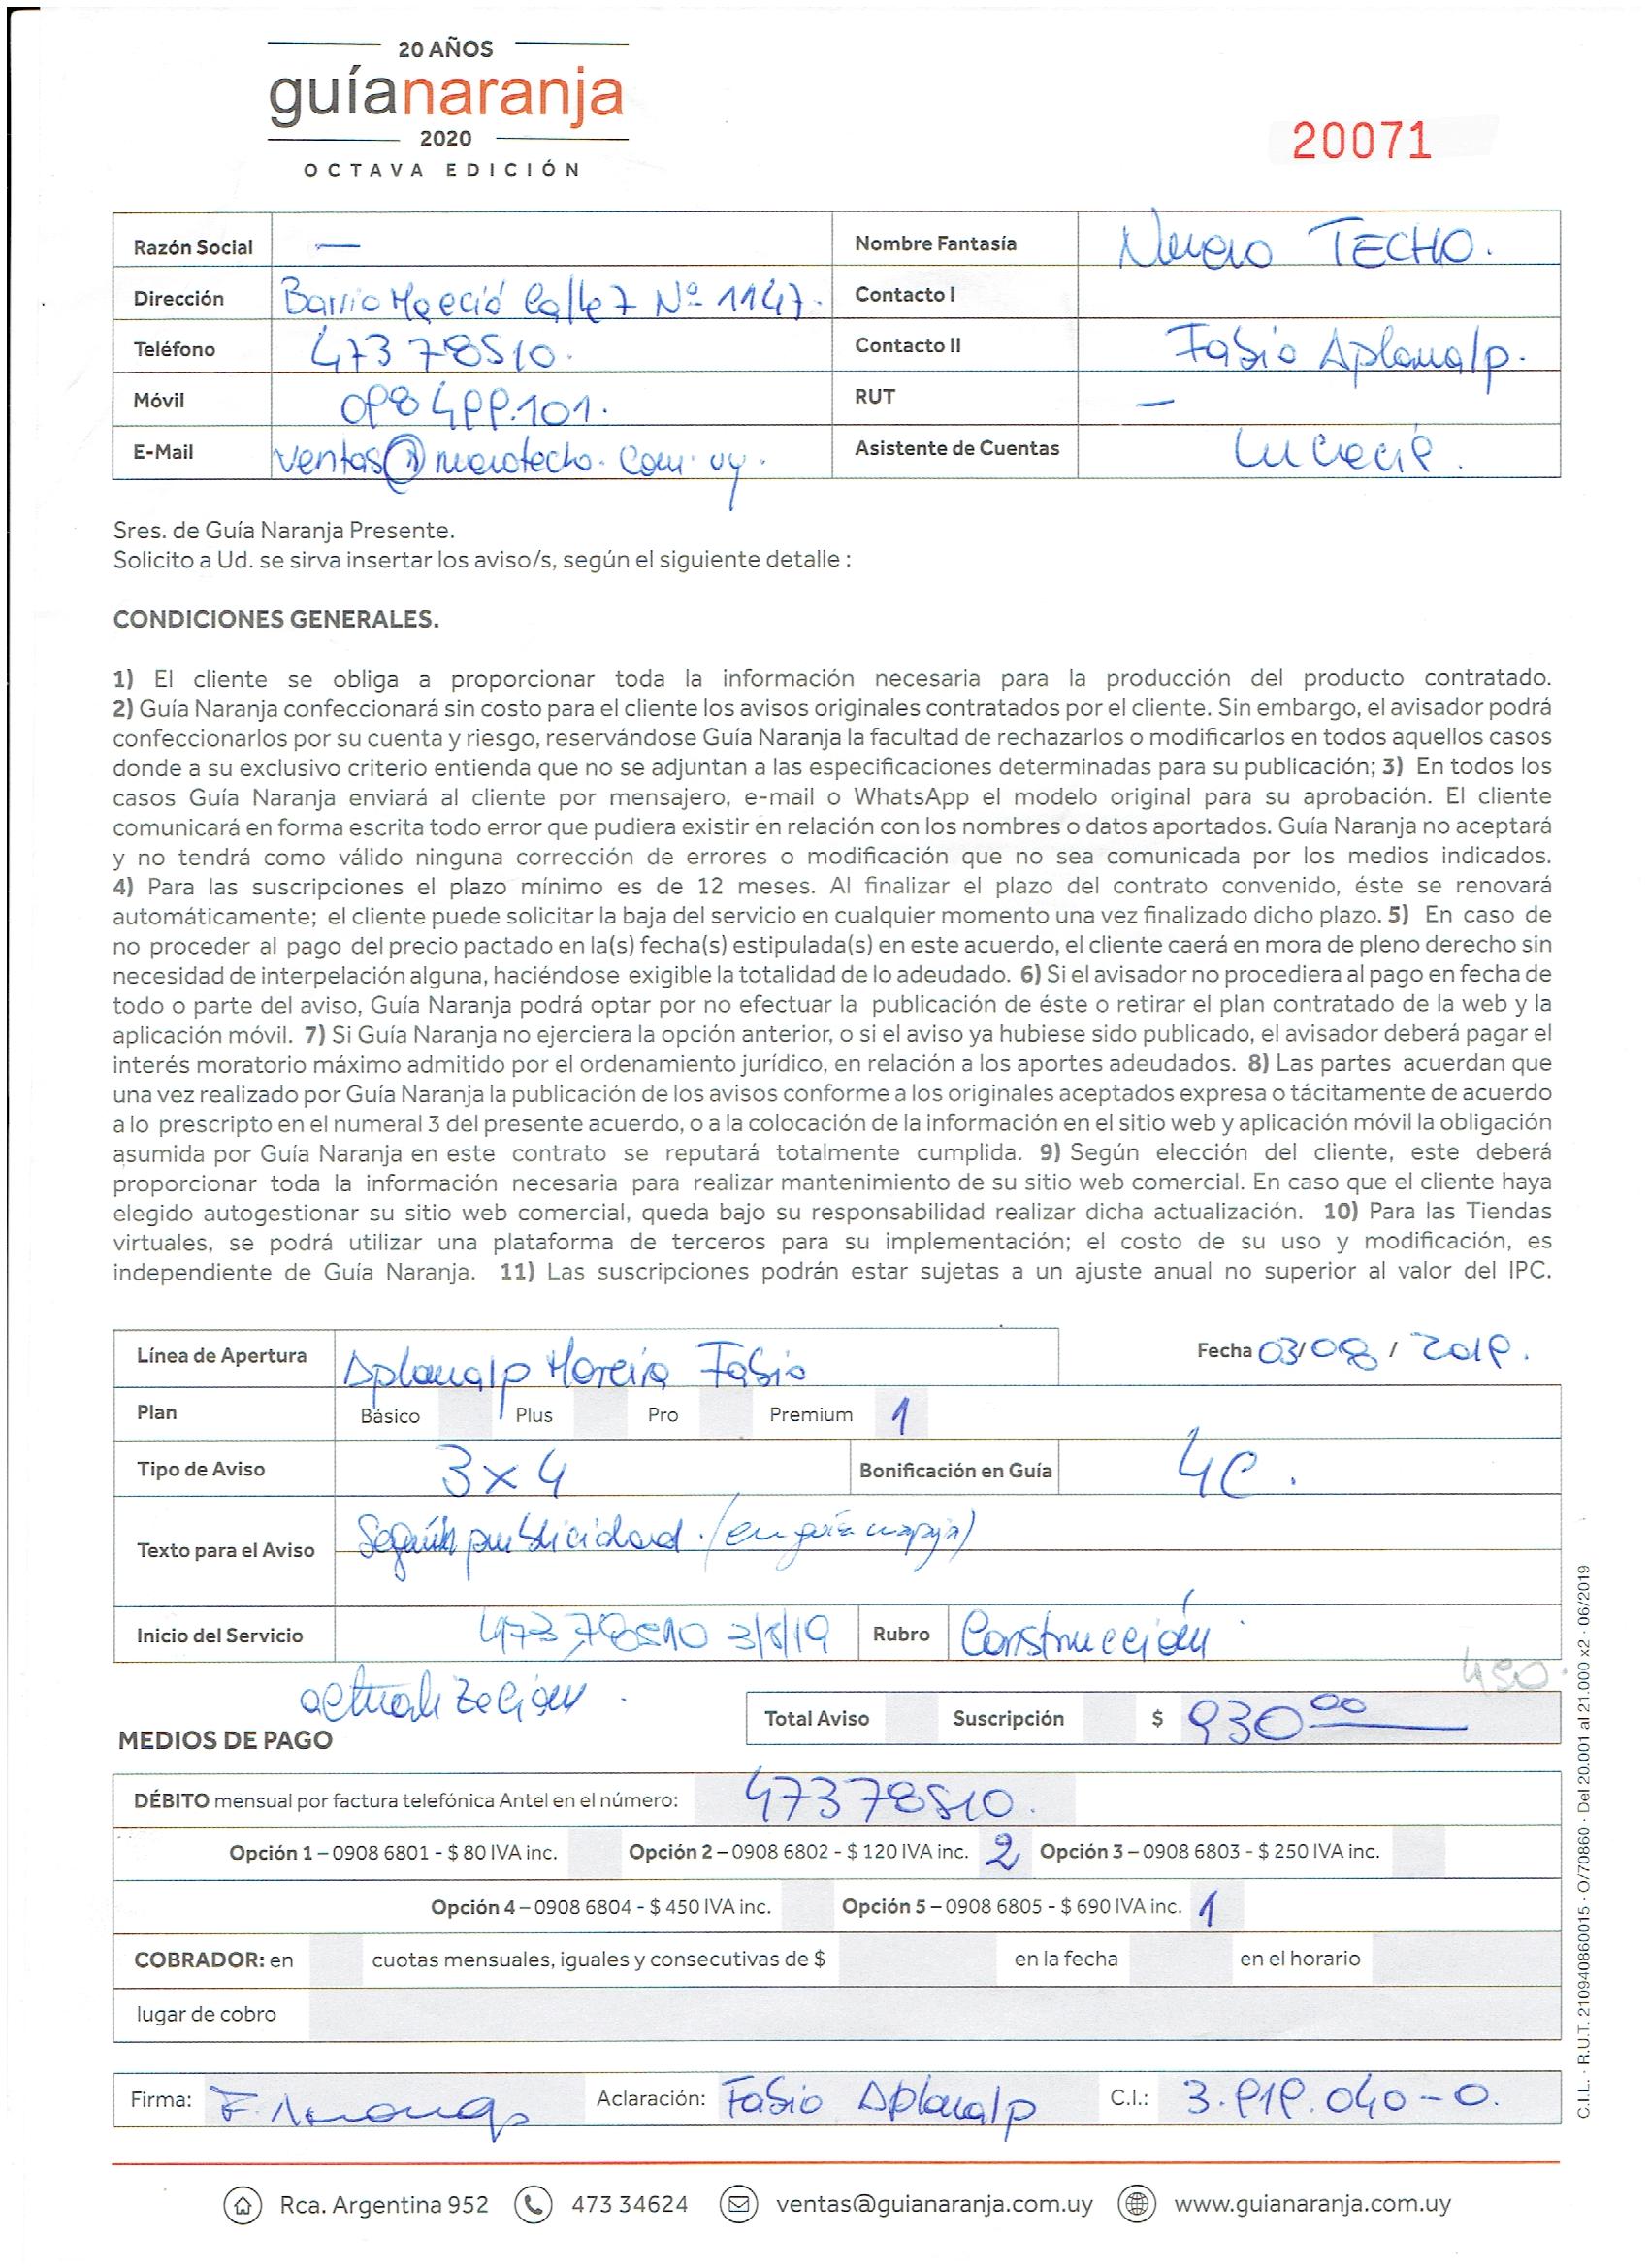 20 AÑOS
guíanaranja
2020
OCTAVA EDICIÓN
20071
Razón Social — Nombre Fantasía Nuevo TECHO.
Dirección Barrio Calle 7 Nº 1147. Contacto I
Teléfono 473 78510. Contacto II Fabio Aplanalp.
Móvil 098 499.101. RUT —
E-Mail ventas@nuevotecho.com.uy. Asistente de Cuentas Lucrecia.
Sres. de Guía Naranja Presente.
Solicito a Ud. se sirva insertar los aviso/s, según el siguiente detalle :
CONDICIONES GENERALES.
1) El cliente se obliga a proporcionar toda la información necesaria para la producción del producto contratado.
2) Guía Naranja confeccionará sin costo para el cliente los avisos originales contratados por el cliente. Sin embargo, el avisador podrá
confeccionarlos por su cuenta y riesgo, reservándose Guía Naranja la facultad de rechazarlos o modificarlos en todos aquellos casos
donde a su exclusivo criterio entienda que no se adjuntan a las especificaciones determinadas para su publicación; 3) En todos los
casos Guía Naranja enviará al cliente por mensajero, e-mail o WhatsApp el modelo original para su aprobación. El cliente
comunicará en forma escrita todo error que pudiera existir en relación con los nombres o datos aportados. Guía Naranja no aceptará
y no tendrá como válido ninguna corrección de errores o modificación que no sea comunicada por los medios indicados.
4) Para las suscripciones el plazo mínimo es de 12 meses. Al finalizar el plazo del contrato convenido, éste se renovará
automáticamente; el cliente puede solicitar la baja del servicio en cualquier momento una vez finalizado dicho plazo. 5) En caso de
no proceder al pago del precio pactado en la(s) fecha(s) estipulada(s) en este acuerdo, el cliente caerá en mora de pleno derecho sin
necesidad de interpelación alguna, haciéndose exigible la totalidad de lo adeudado. 6) Si el avisador no procediera al pago en fecha de
todo o parte del aviso, Guía Naranja podrá optar por no efectuar la publicación de éste o retirar el plan contratado de la web y la
aplicación móvil. 7) Si Guía Naranja no ejerciera la opción anterior, o si el aviso ya hubiese sido publicado, el avisador deberá pagar el
interés moratorio máximo admitido por el ordenamiento jurídico, en relación a los aportes adeudados. 8) Las partes acuerdan que
una vez realizado por Guía Naranja la publicación de los avisos conforme a los originales aceptados expresa o tácitamente de acuerdo
a lo prescripto en el numeral 3 del presente acuerdo, o a la colocación de la información en el sitio web y aplicación móvil la obligación
asumida por Guía Naranja en este contrato se reputará totalmente cumplida. 9) Según elección del cliente, este deberá
proporcionar toda la información necesaria para realizar mantenimiento de su sitio web comercial. En caso que el cliente haya
elegido autogestionar su sitio web comercial, queda bajo su responsabilidad realizar dicha actualización. 10) Para las Tiendas
virtuales, se podrá utilizar una plataforma de terceros para su implementación; el costo de su uso y modificación, es
independiente de Guía Naranja. 11) Las suscripciones podrán estar sujetas a un ajuste anual no superior al valor del IPC.
Línea de Apertura Aplanalp Moreira Fabio Fecha 03/08/2019.
Plan Básico Plus Pro Premium 1
Tipo de Aviso 3x4 Bonificación en Guía 4C.
Texto para el Aviso Según publicidad. (en guía naranja)
Inicio del Servicio 473 78510 3/8/19 Rubro Construcción
actualización. 450.
Total Aviso Suscripción $ 930 00
MEDIOS DE PAGO
DÉBITO mensual por factura telefónica Antel en el número: 47378510.
Opción 1 – 0908 6801 - $ 80 IVA inc. Opción 2 – 0908 6802 - $ 120 IVA inc. 2 Opción 3 – 0908 6803 - $ 250 IVA inc.
Opción 4 – 0908 6804 - $ 450 IVA inc. Opción 5 – 0908 6805 - $ 690 IVA inc. 1
COBRADOR: en cuotas mensuales, iguales y consecutivas de $ en la fecha en el horario
lugar de cobro
Firma: Aclaración: Fabio Aplanalp C.I.: 3.919.040-0.
C.I.L. · R.U.T. 210940860015 · O/70860 · Del 20.001 al 21.000 x2 · 06/2019
Rca. Argentina 952 473 34624 ventas@guianaranja.com.uy www.guianaranja.com.uy